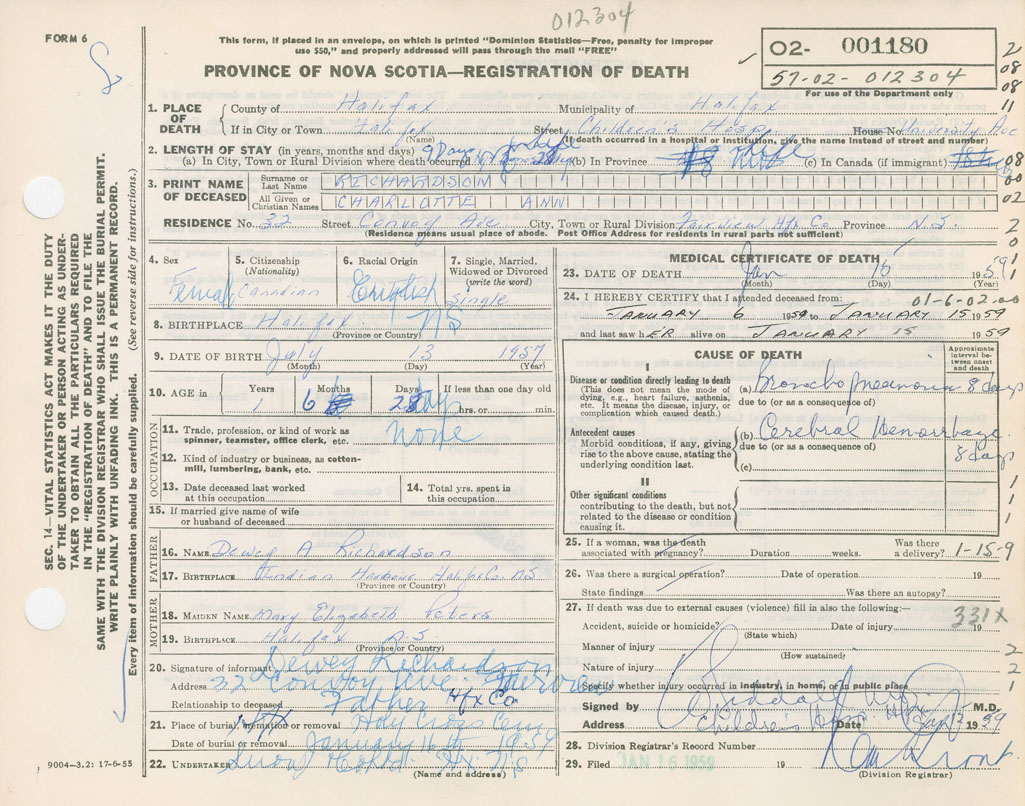 012304
FORM 6
This form, if placed in an envelope, on which is printed "Dominion Statistics—Free, penalty for improper
use $50," and properly addressed will pass through the mail "FREE"
PROVINCE OF NOVA SCOTIA—REGISTRATION OF DEATH
02- 001180
57-02-012304
For use of the Department only
2
08
08
11
SEC. 14—VITAL STATISTICS ACT MAKES IT THE DUTY
OF THE UNDERTAKER OR PERSON ACTING AS UNDER-
TAKER TO OBTAIN ALL THE PARTICULARS REQUIRED
IN THE "REGISTRATION OF DEATH" AND TO FILE THE
SAME WITH THE DIVISION REGISTRAR WHO SHALL ISSUE THE BURIAL PERMIT.
WRITE PLAINLY WITH UNFADING INK. THIS IS A PERMANENT RECORD.
Every item of information should be carefully supplied. (See reverse side for instructions.)
1. PLACE OF DEATH County of Halifax Municipality of Halifax
If in City or Town Halifax Street Children's Hosp. House No. University Ave
(Name) (If death occurred in a hospital or institution, give the name instead of street and number)
2. LENGTH OF STAY (in years, months and days)
(a) In City, Town or Rural Division where death occurred 9 Days (b) In Province life (c) In Canada (if immigrant)
08
3. PRINT NAME OF DECEASED
Surname or Last Name RICHARDSON
00
All Given or Christian Names CHARLOTTE ANN
02
RESIDENCE No. 32 Street Convoy Ave City, Town or Rural Division Fairview Hfx Co Province N.S.
2
(Residence means usual place of abode. Post Office Address for residents in rural parts not sufficient)
0
4. Sex Female
5. Citizenship (Nationality) Canadian
6. Racial Origin English
7. Single, Married, Widowed or Divorced (write the word) Single
8. BIRTHPLACE Halifax NS
(Province or Country)
9. DATE OF BIRTH July 13 1957
(Month) (Day) (Year)
10. AGE in Years 1 Months 6 Days 2 days If less than one day old hrs. or min.
OCCUPATION
11. Trade, profession, or kind of work as spinner, teamster, office clerk, etc. none
12. Kind of industry or business, as cotton-mill, lumbering, bank, etc.
13. Date deceased last worked at this occupation
14. Total yrs. spent in this occupation
15. If married give name of wife or husband of deceased
FATHER
16. NAME Dewey A Richardson
17. BIRTHPLACE Indian Harbour Halifax Co. NS
(Province or Country)
MOTHER
18. MAIDEN NAME Mary Elizabeth Peters
19. BIRTHPLACE Halifax N.S
(Province or Country)
20. Signature of informant Dewey Richardson
Address 32 Convoy Ave. Fairview
Relationship to deceased Father Hfx Co
21. Place of burial, cremation or removal Holy Cross Cem
Date of burial or removal January 16th 1959
22. UNDERTAKER
(Name and address)
9004-3.2: 17-6-55
MEDICAL CERTIFICATE OF DEATH
23. DATE OF DEATH Jan 15 1959
(Month) (Day)
24. I HEREBY CERTIFY that I attended deceased from: 01-6-02.00
JANUARY 6 1959 to JANUARY 15 1959
and last saw hER alive on JANUARY 15 1959
CAUSE OF DEATH
Approximate interval between onset and death
I
Disease or condition directly leading to death
(This does not mean the mode of dying, e.g., heart failure, asthenia, etc. It means the disease, injury, or complication which caused death.)
(a) Bronchopneumonia 8 days
due to (or as a consequence of)
Antecedent causes
Morbid conditions, if any, giving rise to the above cause, stating the underlying condition last.
(b) Cerebral Hemorrhage
due to (or as a consequence of) 8 days
(c)
II
Other significant conditions contributing to the death, but not related to the disease or condition causing it.
1
1
1
25. If a woman, was the death associated with pregnancy? Duration weeks. Was there a delivery? 1-15-9
26. Was there a surgical operation? Date of operation 19
State findings Was there an autopsy?
27. If death was due to external causes (violence) fill in also the following:—
331X
Accident, suicide or homicide? Date of injury 19
(State which)
Manner of injury
2
(How sustained)
Nature of injury
2
Specify whether injury occurred in industry, in home, or in public place
1
Signed by M.D.
Address Children's Hosp. Hfx Date Jan 1959
28. Division Registrar's Record Number
29. Filed JAN 16 1959 19
(Division Registrar)